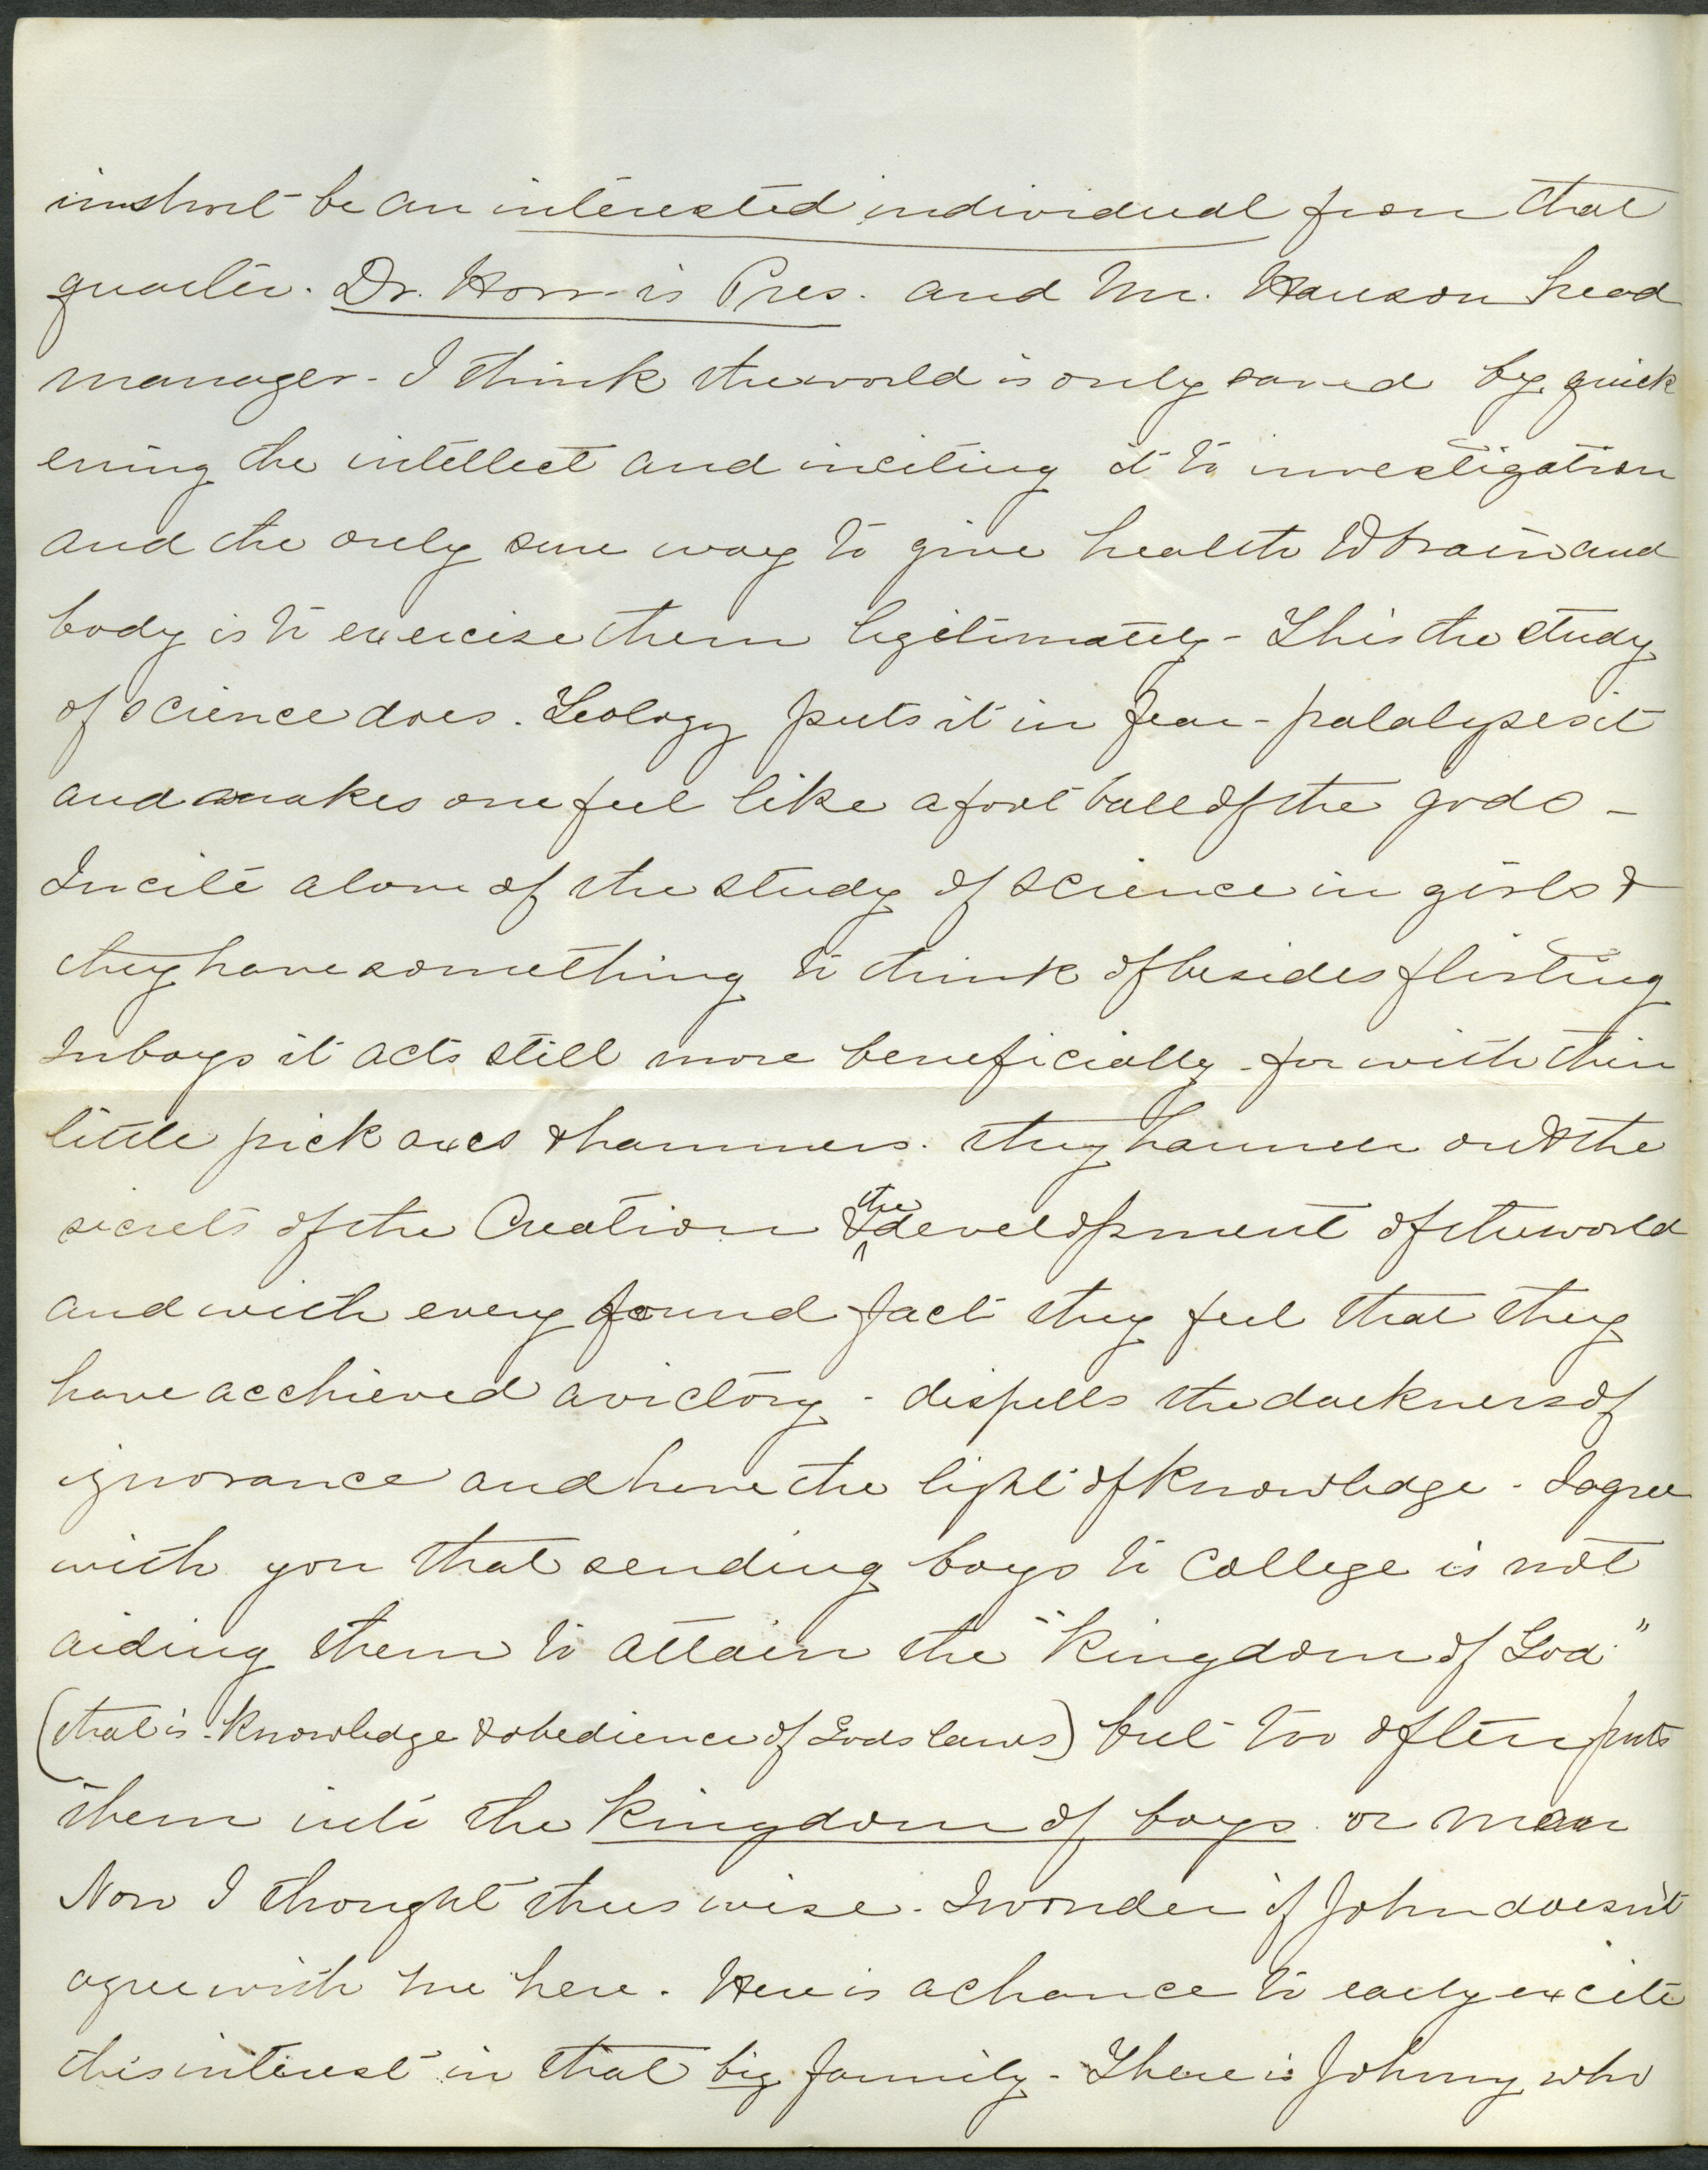 in short be an interested individual from that
quarter. Dr. Horr is Pres. and Mr. Hanson head
manager - I think the world is only saved by quick
ening the intellect and inciting it to investigation
and the only sure way to give health to brain and
body is to exercise them legitimately - This the study
of science does. Geology puts it in fear - palalyses it
and makes one feel like a foot ball of the gods -
Incite a love of the study of science in girls &
they have something to think of besides flirting
In boys it acts still more beneficially - for with their
little pick axes & hammers. they hammer out the
secrets of the Creation & the development of the world
and with every found fact they feel that they
have acchieved a victory - dispells the darkness of
ignorance and have the light of knowledge - I agree
with you that sending boys to College is not
aiding them to attain the "Kingdom of God."
(that is - Knowledge & obedience of Gods laws) but too often puts
them into the Kingdom of boys or man
Now I thought thus wise. I wonder if John doesn't
agree with me here. Here is a chance to early excite
this interest in that big family - There is Johnny who